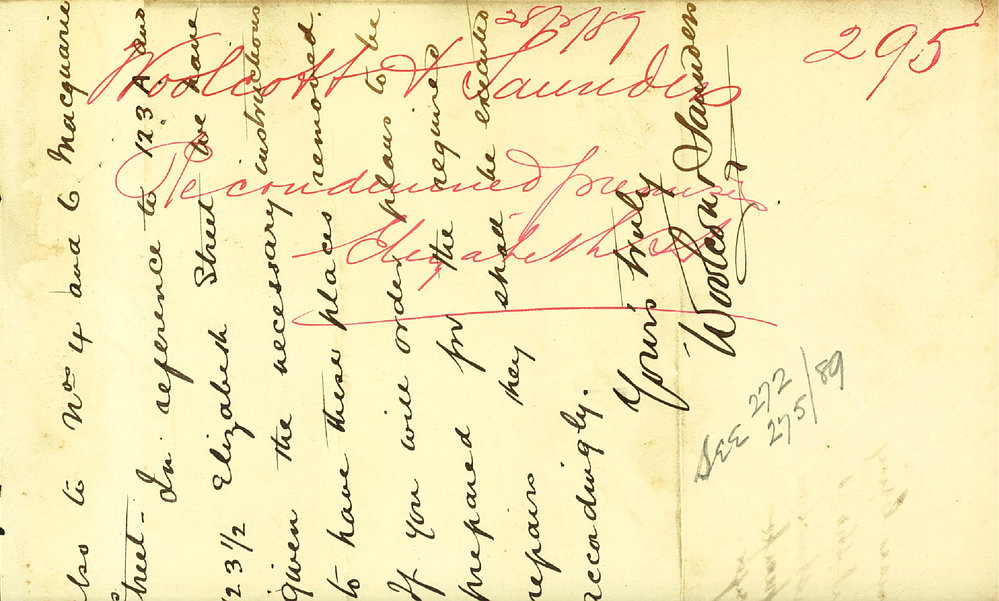 28/2/89
295
Woolcott & Saunders
Re condemned premises
Elizabeth St
also to Nos 4 and 6 Macquarie
Street - In reference to 123A and
123 1/2 Elizabeth Street we have
given the necessary instructions
to have these places removed.
If you will order plans to be
prepared for the required
repairs they shall be executed
accordingly.
Yours truly
Woolcott & Saunders
SEE 272
275/89